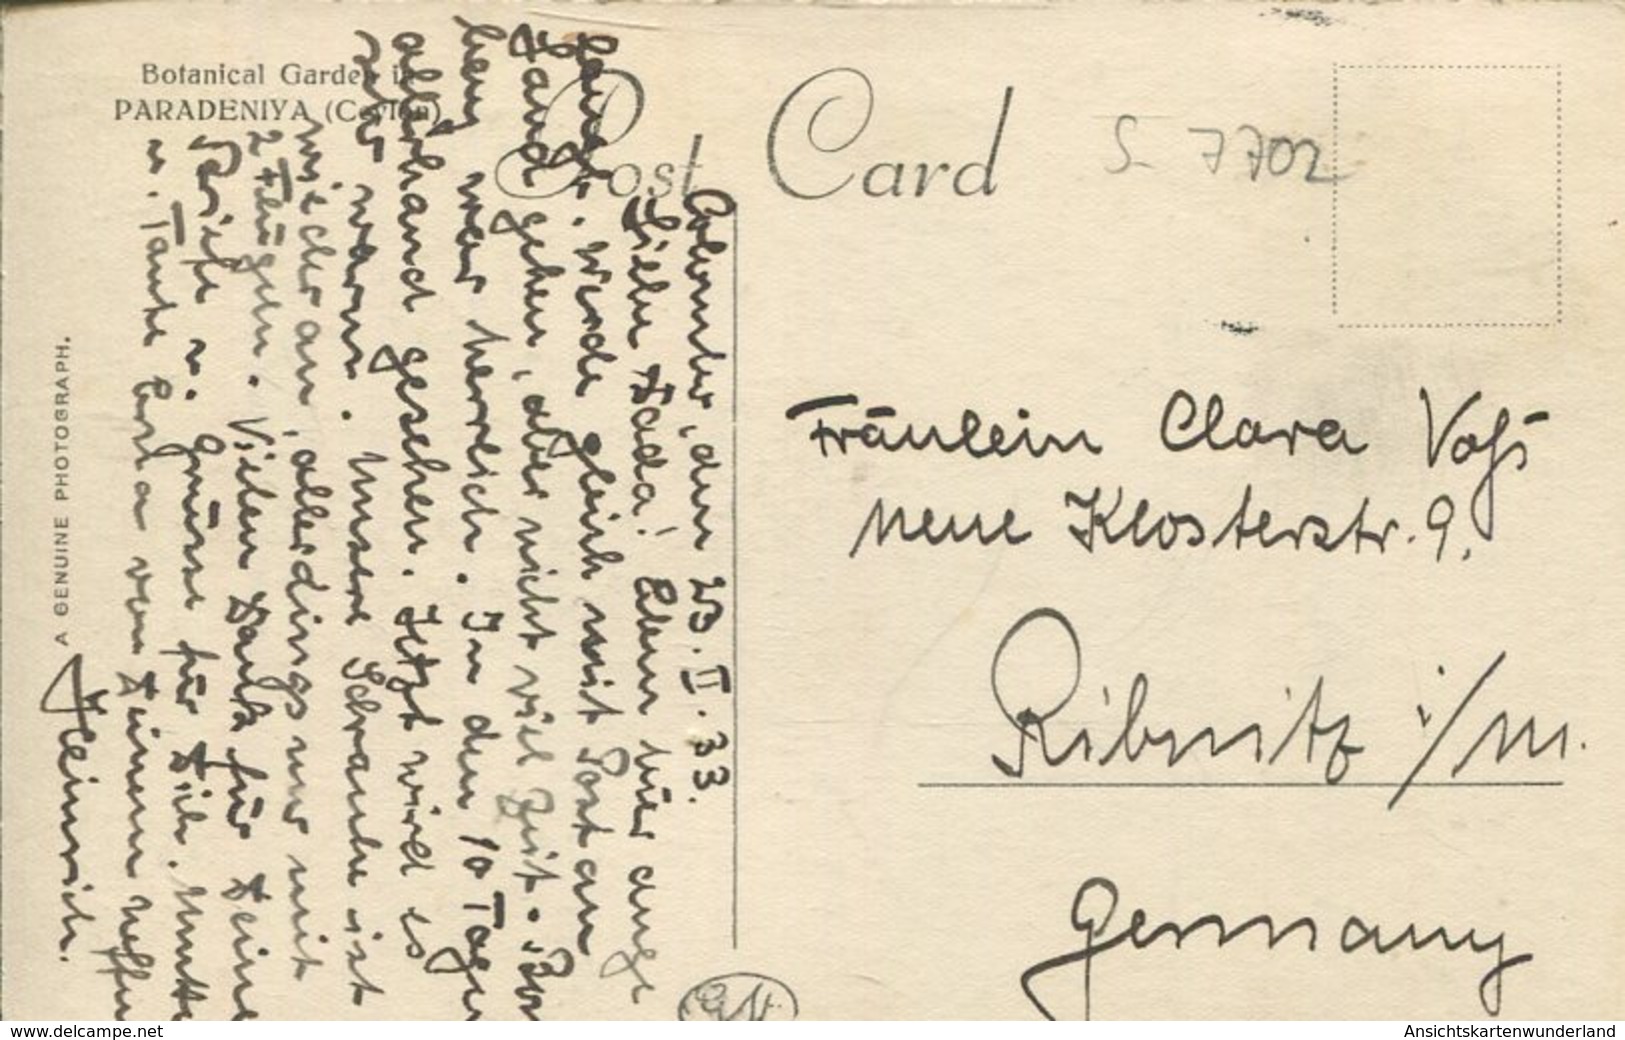 Botanical Garden in
PARADENIYA (Ceylon)
Post Card
S 7702
A GENUINE PHOTOGRAPH.
Colombo, den 23. II. 33.
Liebe Dada! Eben hier ange
langt. Werde gleich mit Post an
Land gehen, aber nicht viel Zeit. Bom
bay war herrlich. In den 10 Tagen
allerhand gesehen. Jetzt wird es
sehr warm. Unsere Schraube ist
wieder an, allerdings nur mit
2 Flügeln. Vielen Dank für Deine
Briefe u. Grüsse für Dich, Mutter
u. Tante Erna von Deinem Neffen
Heinrich.
Fräulein Clara Voß
Neue Klosterstr. 9.
Ribnitz i/M.
Germany
www.delcampe.net
Ansichtskartenwunderland